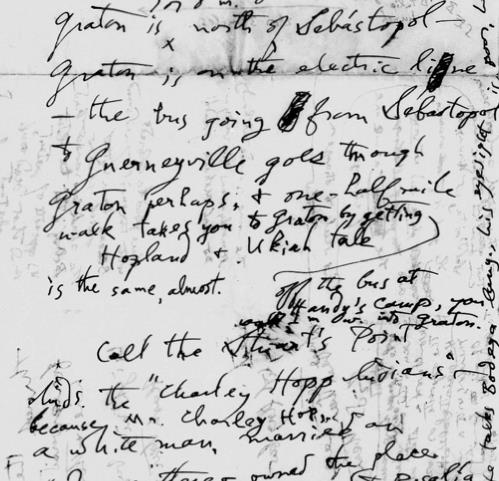 Graton is north of Sebastopol —
Graton is on the electric line
— the bus going from Sebastopol
to Guerneville goes through
Graton perhaps; + one-half mile
walk takes you to Graton by getting
off the bus at
Handy's camp, you
into Graton.
Hopland + Ukiah talk
is the same, almost.
Call the Stuart's Point
inds. the "Charley Hopp Indians"
because Mr. Charley Hopp
a white man, married an
owned the place
talks Bodega his eyesight is poor,